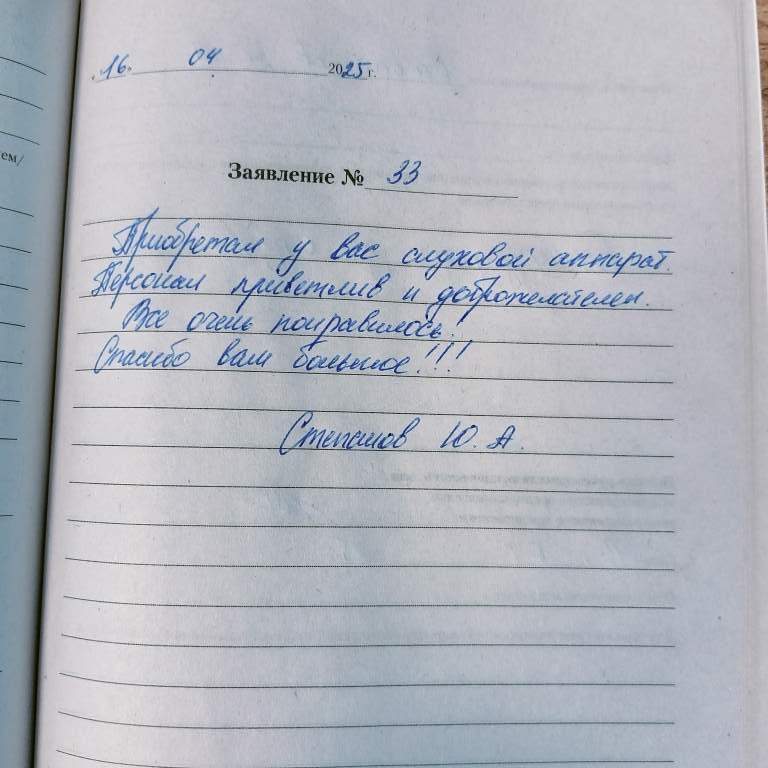 ем/
„16" 04 2025 г.
Заявление № 33
Приобретал у вас слуховой аппарат.
Персонал приветлив и доброжелателен.
Все очень понравилось!
Спасибо вам большое!!!
Степанов Ю. А.